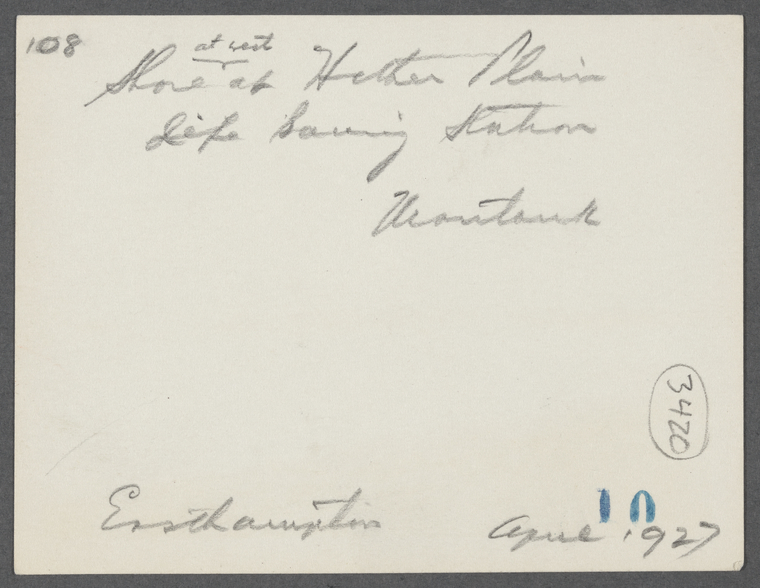 108
at west
Shore at Hither Plain
Life Saving Station
Montauk
3420
10
Easthampton April 1927